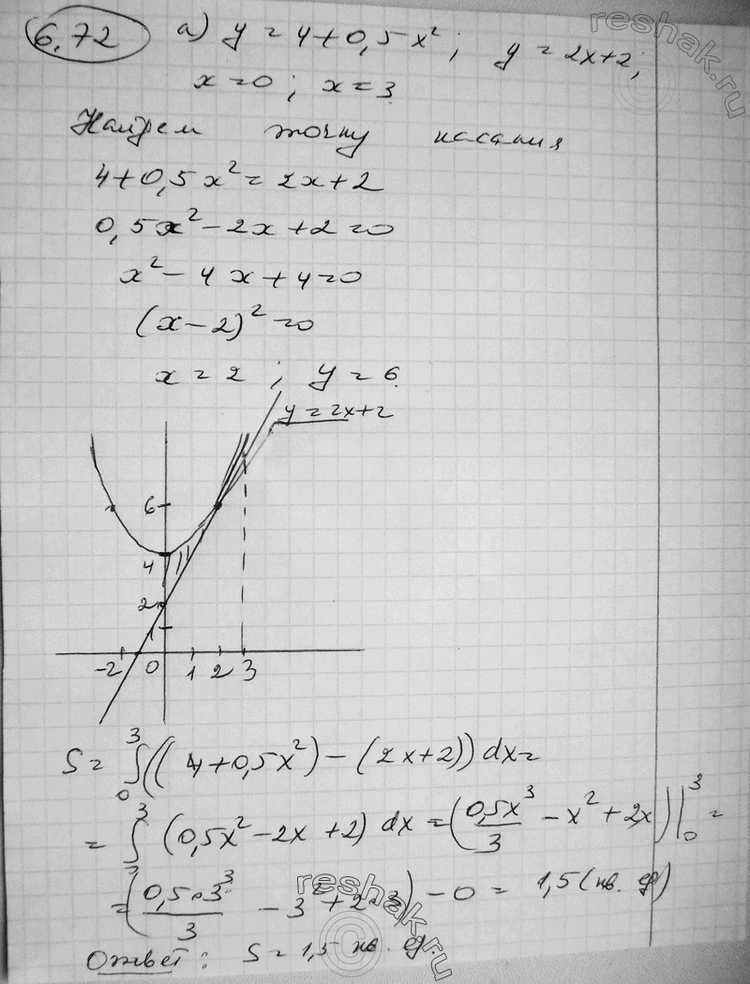 6.72 а) y = 4+0,5x²; y = 2x+2;
x=0; x=3
Найдем точку касания
4+0,5x²=2x+2
0,5x²-2x+2=0
x²-4x+4=0
(x-2)²=0
x=2; y=6
y=2x+2
6
4
2
1
-2 0 1 2 3
S = ∫₀³((4+0,5x²)-(2x+2))dx=
= ∫₀³(0,5x²-2x+2)dx=(0,5x³/3 - x²+2x)|₀³=
=(0,5·3³/3 - 3²+2·3)-0 = 1,5 (кв. ед)
Ответ: S=1,5 кв. ед.
reshak.ru
reshak.ru